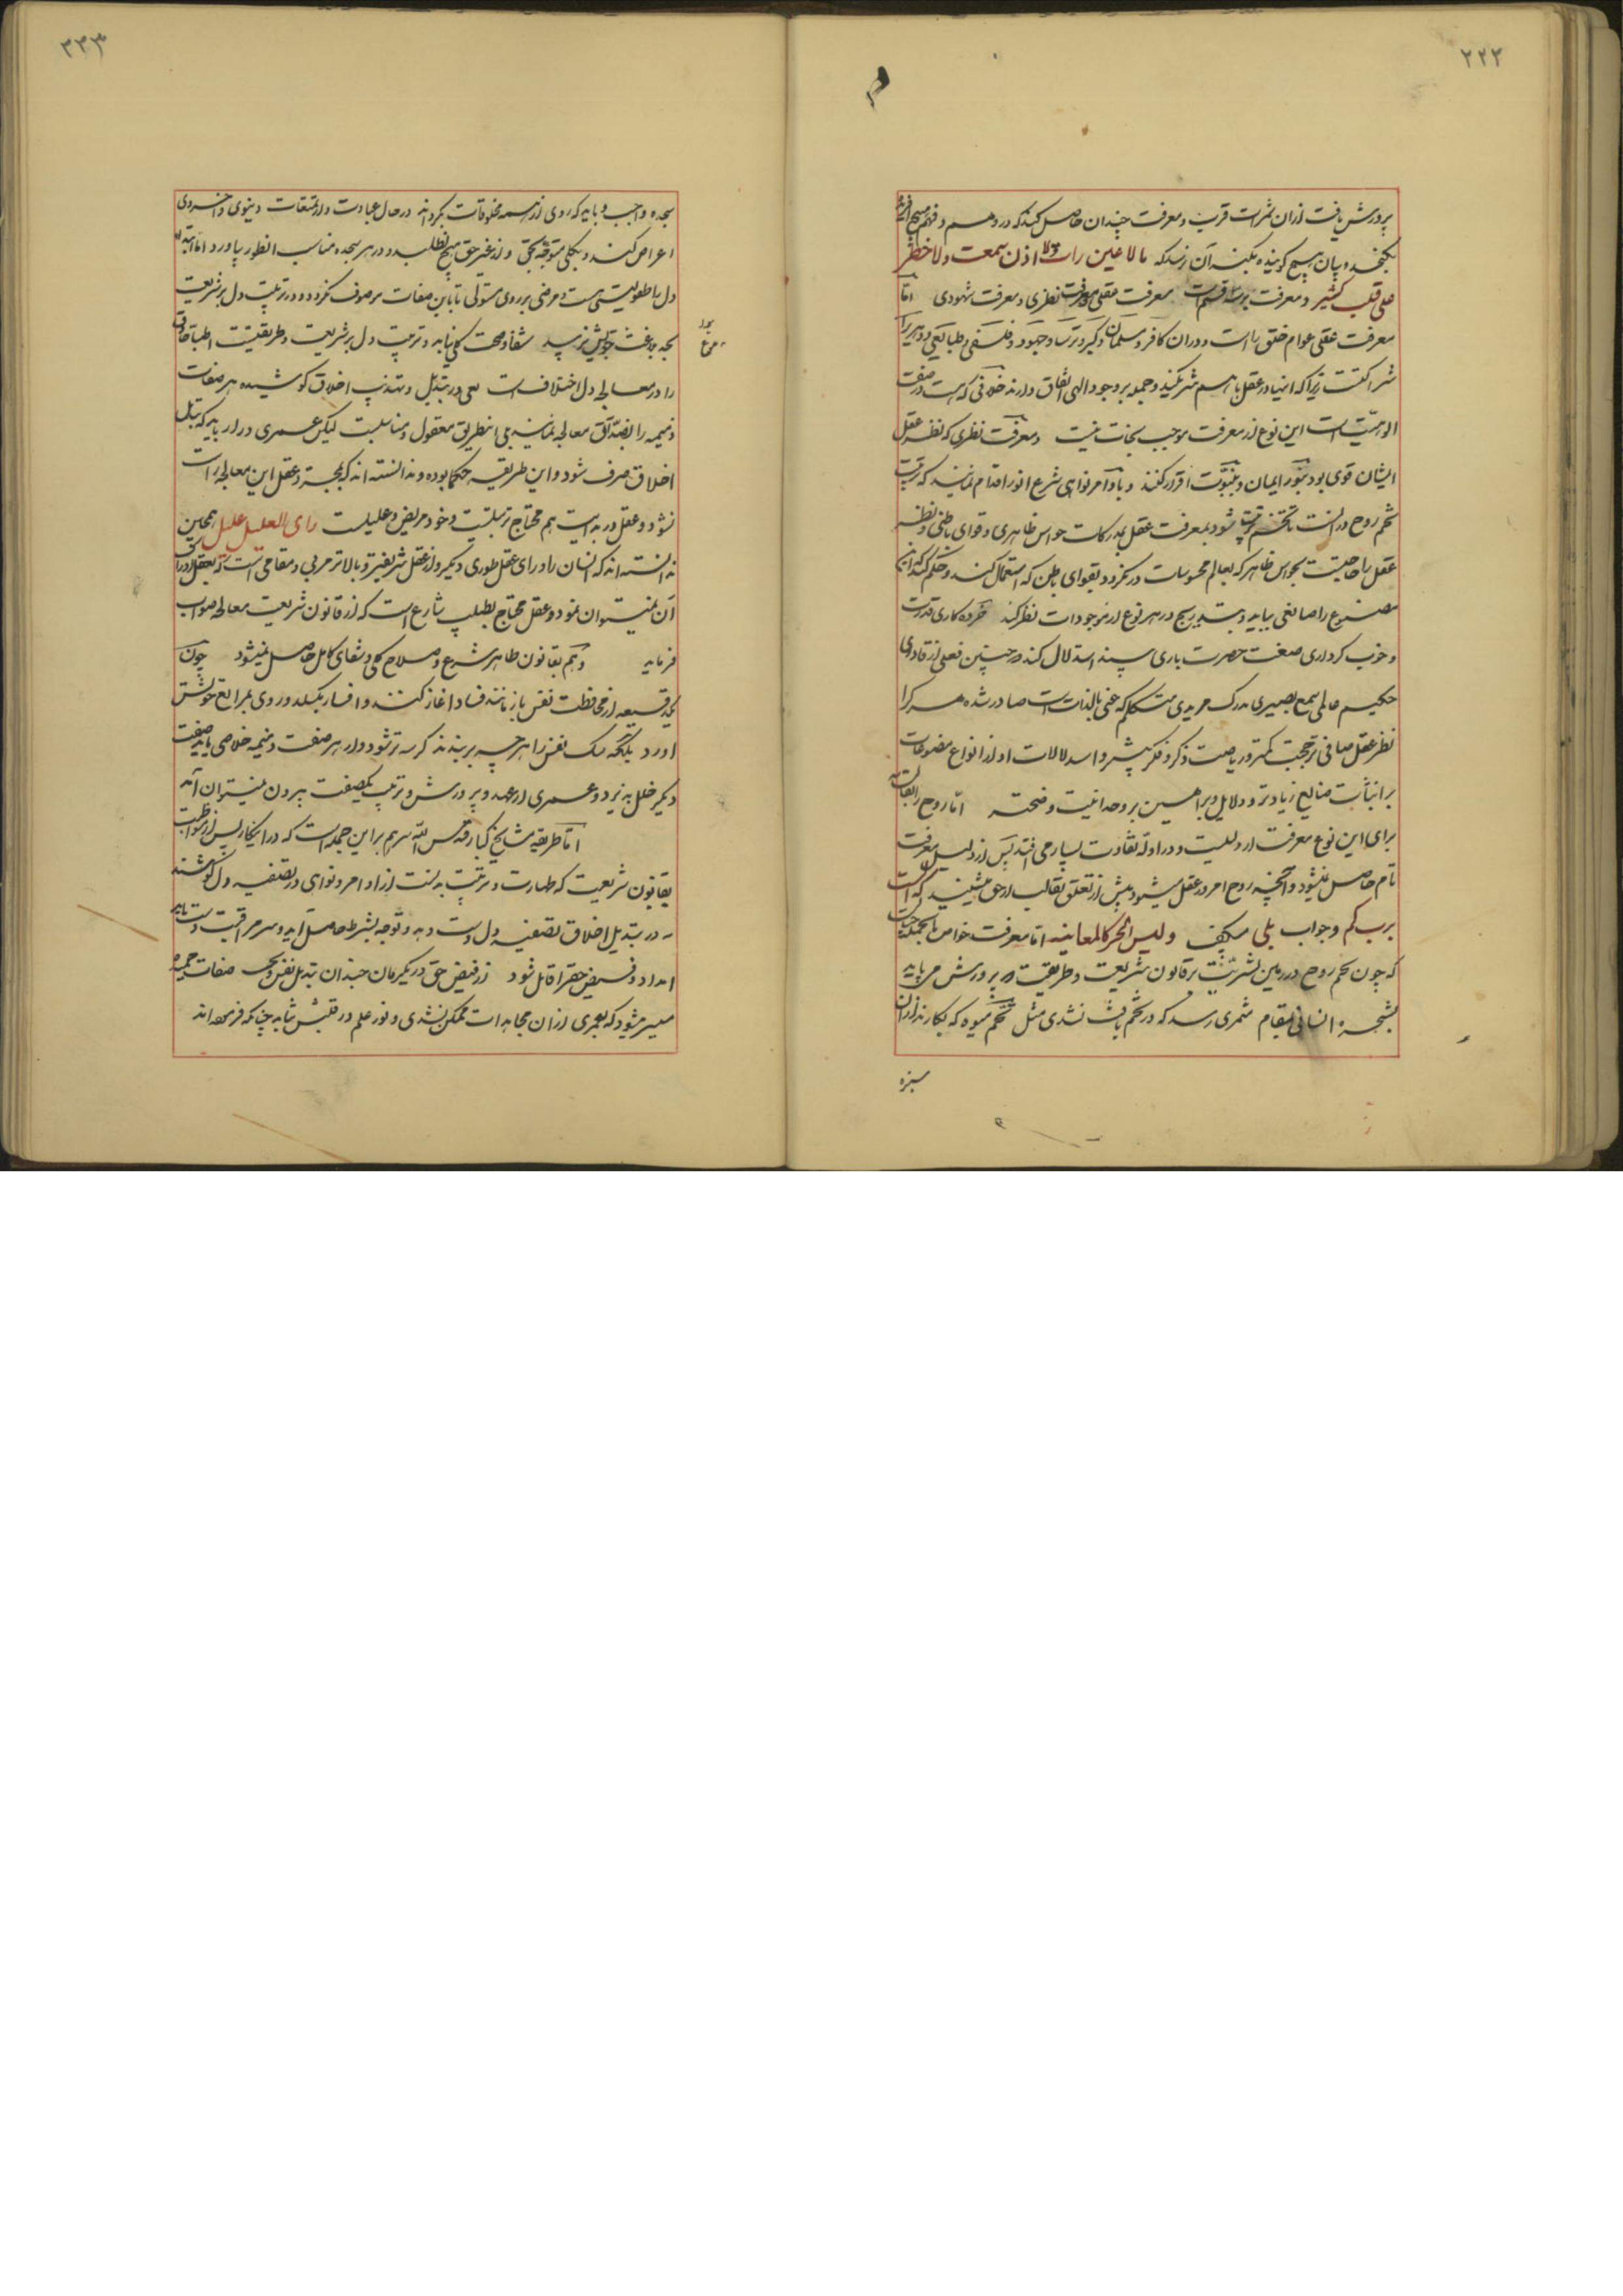 ۲۲۴
پرورش یافت از ان ثمرات قربت و معرفت چندان حاصل کند که در وهم و فهم هیچ
نگنجد و بیان هیچ گوینده بکنه آن نرسد که مالا عین رات ولا اذن سمعت ولا خطر
علی قلب بشر و معرفت بر سه قسم است معرفت عقلی و معرفت نظری و معرفت شهودی اما
معرفت عقلی عوام خلق راست و در ان کافر و مسلمان و گبر و ترسا و جهود و فلسفی و طبایعی و دهریرا
شراکتست زیرا که اینها در عقل با هم شریکند و جمله بر وجود الهی اتفاق دارند خلافی که هست در صفت
الوهیت است این نوع از معرفت موجب نجات نیست و معرفت نظری که نظر عقل
ایشان قوی بود بنور ایمان و بنبوت اقرار کنند و باوامر نواهی شرع انور اقدام نمایند که تربیت
تخم روح در انست تا تخم تربیت شود بمعرفت عقل بمدرکات حواس ظاهری و قوای باطنی و نظر
عقل را حاجتست بحواس ظاهر که بعالم محسوسات در نگرد و بقوای باطن که استعمال کند و حکم کند که این
مصنوع را صانعی بباید و بتدریج در هر نوع از موجودات نظر کند خرده کاری قدرت
و خوب کرداری صنعت حضرت باری بیند استدلال کند که چنین فعلی از قادری
حکیم عالمی سمیع بصیری مدرک مریدی متکلم که غنی بالذات است صادر شده هر کرا
نظر عقل صافی تر حجب کمتر و ریاضت و ذکر و فکر بیشتر و استدلالات او از انواع مصنوعات
بر اثبات صانع زیادتر و دلایل و براهین بر وحدانیت واضحتر اما روح را بقالب
برای این نوع معرفت اوردند و در ادله تفاوت بسیار می افتد پس از دلیل معرفت
تام حاصل نمیشود و انچه روح امروز عقل میشنود پیش از تعلق بقالب از حق میشنید که الست
بربکم و جواب بلی میگفت و لیس الخبر کالمعاینه اما معرفت خواص
که چون تخم روح در زمین بشریت بر قانون شریعت و طریقت پرورش می یابد
شجره انسانی بمقام ثمری رسد که در تخم یافت نشدی مثل تخم میوه که بکارند از ان
سبزه
۲۲۳
سجده واجب و باید که روی از همه مخلوقات بگرداند در حال عبادت و از تمتعات دنیوی و اخروی
اعراض کند و بکلی متوجه بحق و از غیر حق هیچ نطلبد و در هر سجده مناسب انطور بیاورد اما
دل را طفولیتی هست و مرضی بر روی مستولی تا باین صفات موصوف نگردد و در تربیت دل بر شریعت
بحد بلاغت خویش نرسد شفا و صحت کلی نیابد و تربیت دل بر شریعت و طریقتست اطبا
را در معالجه دل اختلاف است بعی در تبدیل و تهذیب اخلاق کوشیده هر صفات
ذمیمه را بضد آن معالجه نمایند می انطریق معقول و مناسبت لیکن عمری دراز باید که تبدیل
اخلاق صرف شود و این طریقه حکما بوده و ندانسته اند که بمجرد عقل این معالجه راست
نشود و عقل در بدایت هم محتاج تربیتست و خود مریض و علیلست رای العلیل علیل همچنین
ندانسته اند که انسان را ورای عقل طوری دیگر و از عقل شریفتر و بالاتر مرتبی و مقامی است که بعقل ادراک
آن نمیتوان نمود و عقل محتاج بطبیب شارع است که از قانون شریعت معالجه صواب
فرماید و هم بقانون ظاهر شرع صلاح کلی و شفای کامل حاصل نمیشود چون
یکدقیقه از محافظت نفس بازمانند فساد اغاز کنند و افسار بگسلد و روی بمراتع خویش
اورد بلکه سگ نفس را هر چه بر بندند گرسنه تر شود و از هر صفت ذمیمه خلاصی یابد صفت
دیگر خلل پذیرد و عمری از عهده پرورش و تربیت یکصفت بیرون نمیتوان آمد
اما طریقه مشایخ کبار قدس الله سرهم بر این جمله است که در اینکار پس از مواظبت
بقانون شریعت که طهارت و تربیت بدنست از اوامر و نواهی در تصفیه دل کوشند
نه در تبدیل اخلاق تصفیه دل دست دهد و توجه بشرط حاصل آید و سر مراقبت دست
امداد و فیض حق را قابل شود از فیض حق در یکزمان چندان تبدیل نفس و صفات
میسر میشود که بعمری از ان مجاهدات ممکن نشدی و نور علم در قلبش بتابد چنانکه فرموده اند